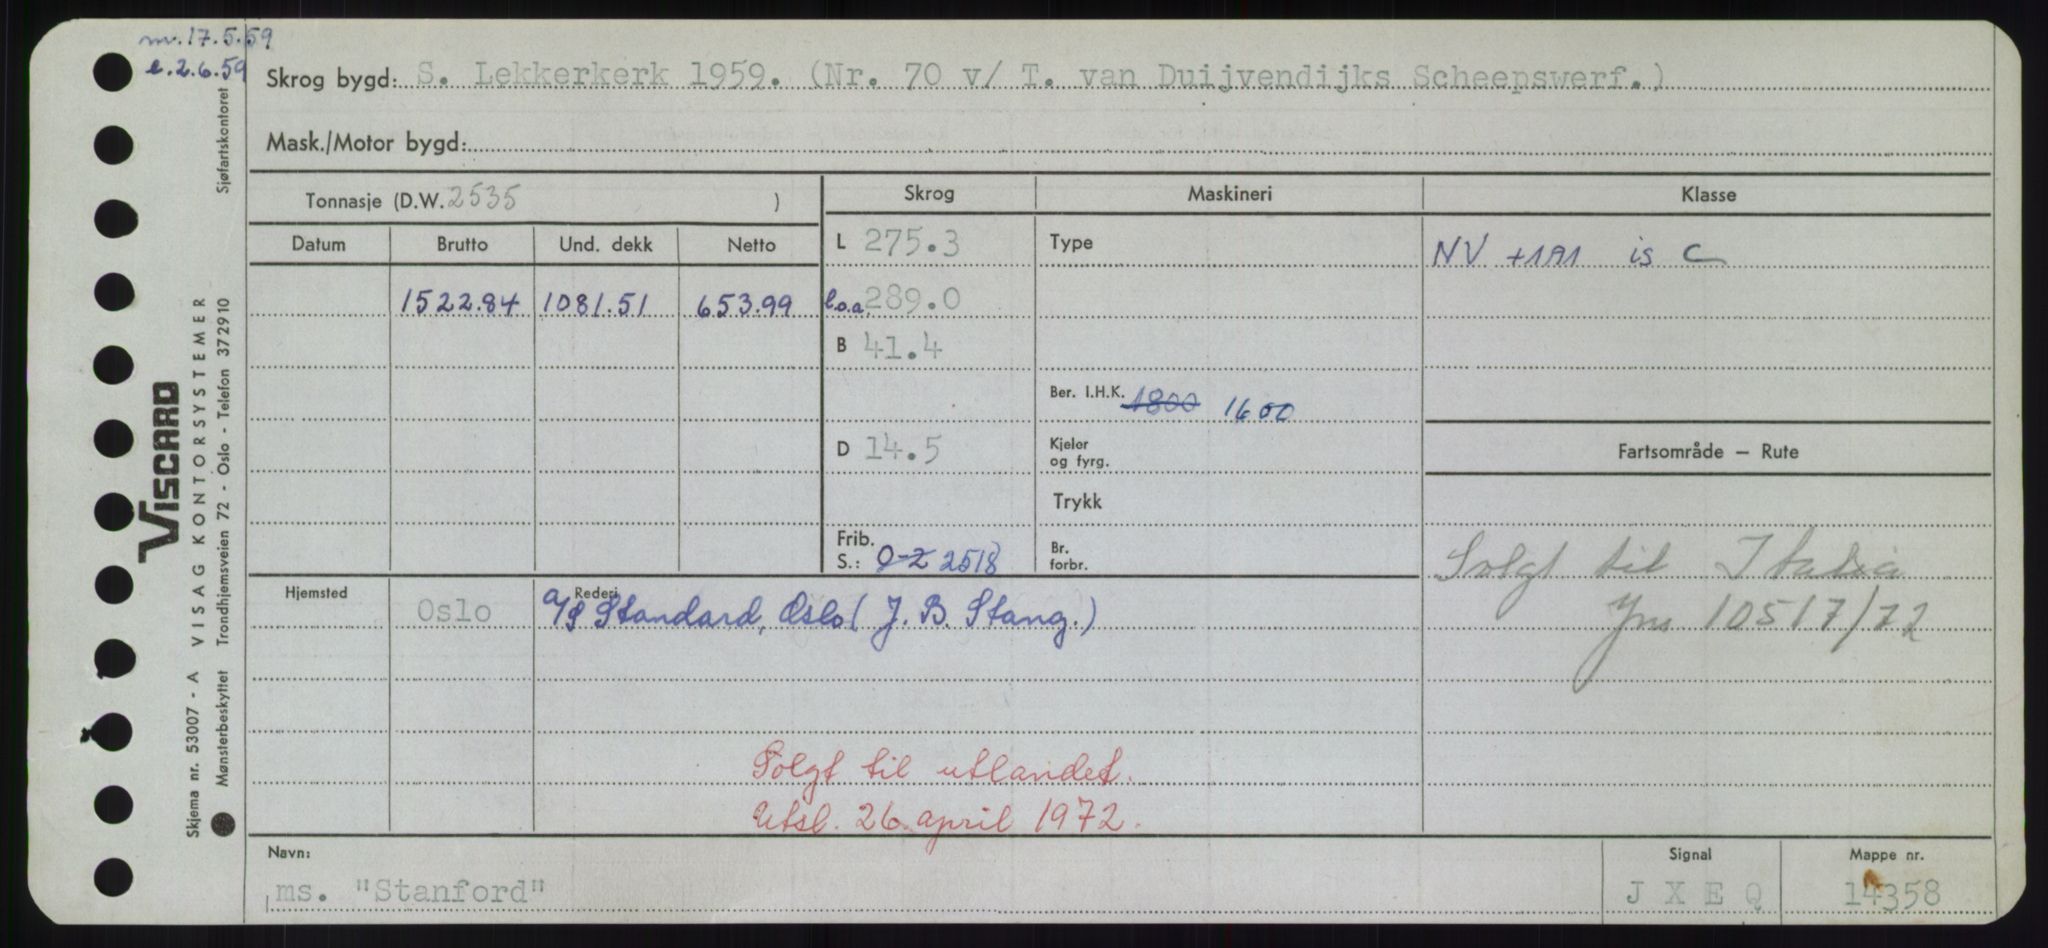 nv. 17.5.59
e. 2.6.59
Skrog bygd: S. Lekkerkerk 1959. (Nr. 70 v/ T. van Duijvendijks Scheepswerf.)
Mask./Motor bygd:
Tonnasje (D.W. 2535 )
Skrog Maskineri Klasse
Datum Brutto Und. dekk Netto
L 275.3 Type NV +1A1 is C
1522.84 1081.51 653.99 l.o.a. 289.0
B 41.4
Ber. I.H.K. 1800 1600
D 14.5 Kjeler og fyrg. Fartsområde — Rute
Trykk
Frib. S.: 0-2 2518 Br. forbr.
Solgt til Italia
10517/72
Hjemsted Oslo Rederi A/S Standard, Oslo (J. B. Stang.)
Solgt til utlandet.
Utsl. 26. april 1972.
Navn: Signal Mappe nr.
ms. "Stanford" J X E Q 14358
Viscard
VISAG KONTORSYSTEMER
Skjema nr. 53007 - A
Mønsterbeskyttet Trondhjemsveien 72 - Oslo - Telefon 372910
Sjøfartskontoret